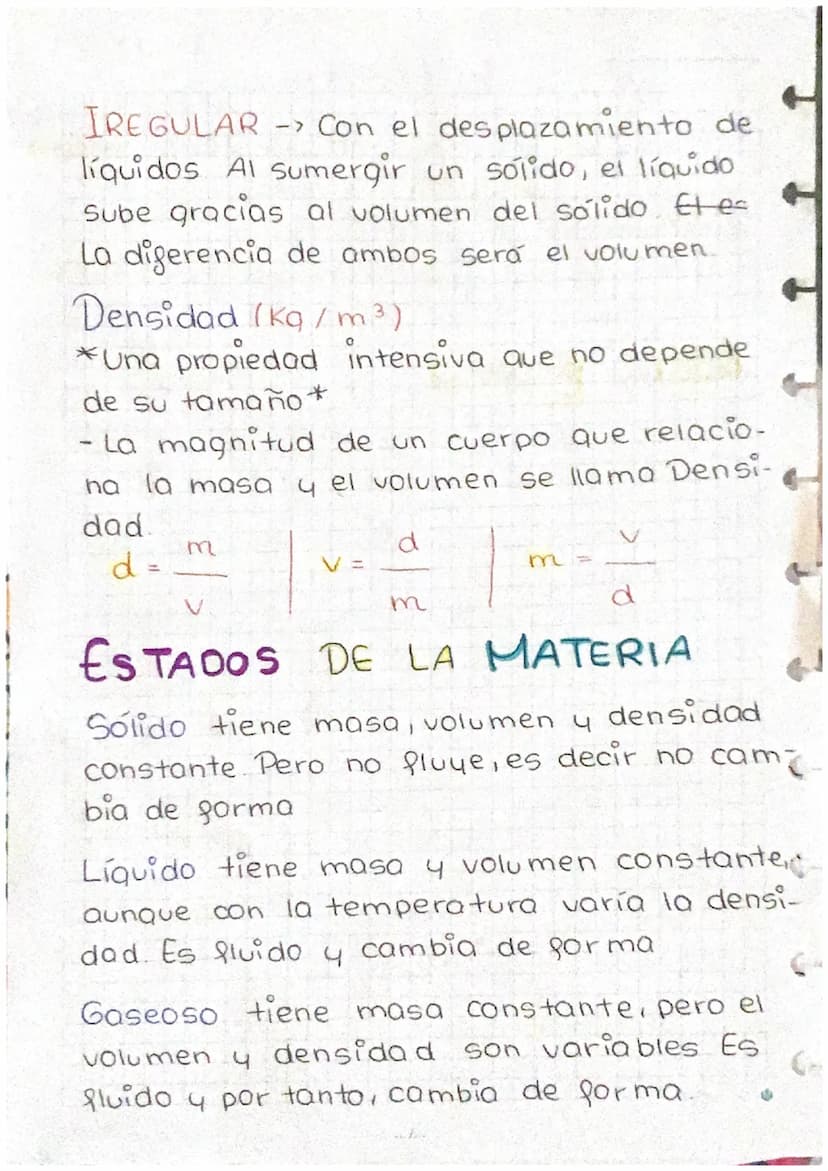 IREGULAR -> Con el desplazamiento de
líquidos. Al sumergir un sólido, el líquido
sube gracias al volumen del sólido. El es
La diferencia de ambos será el volumen.
Densidad (kg/m³)
*Una propiedad intensiva que no depende
de su tamaño*
- La magnitud de un cuerpo que relacio-
na la masa y el volumen se llama Densi-
dad.
d = m/v | v = d/m | m = v/d
ESTADOS DE LA MATERIA
Sólido tiene masa, volumen y densidad
constante. Pero no fluye, es decir no cam-
bia de forma
Líquido tiene masa y volumen constante,
aunque con la temperatura varía la densi-
dad. Es fluido y cambia de forma
Gaseoso tiene masa constante, pero el
volumen y densidad son variables Es
fluido y por tanto, cambia de forma.